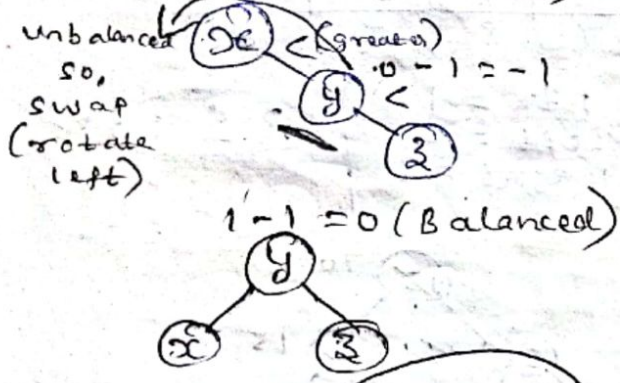 unbalanced
so,
swap
(rotate
left)
x < (greater)
0 - 1 = -1
y <
z
1 - 1 = 0 (Balanced)
y
x z